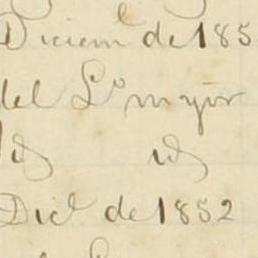 Diciemᵉ de 185
del Sº mayor
id id
Dicᵉ de 1852